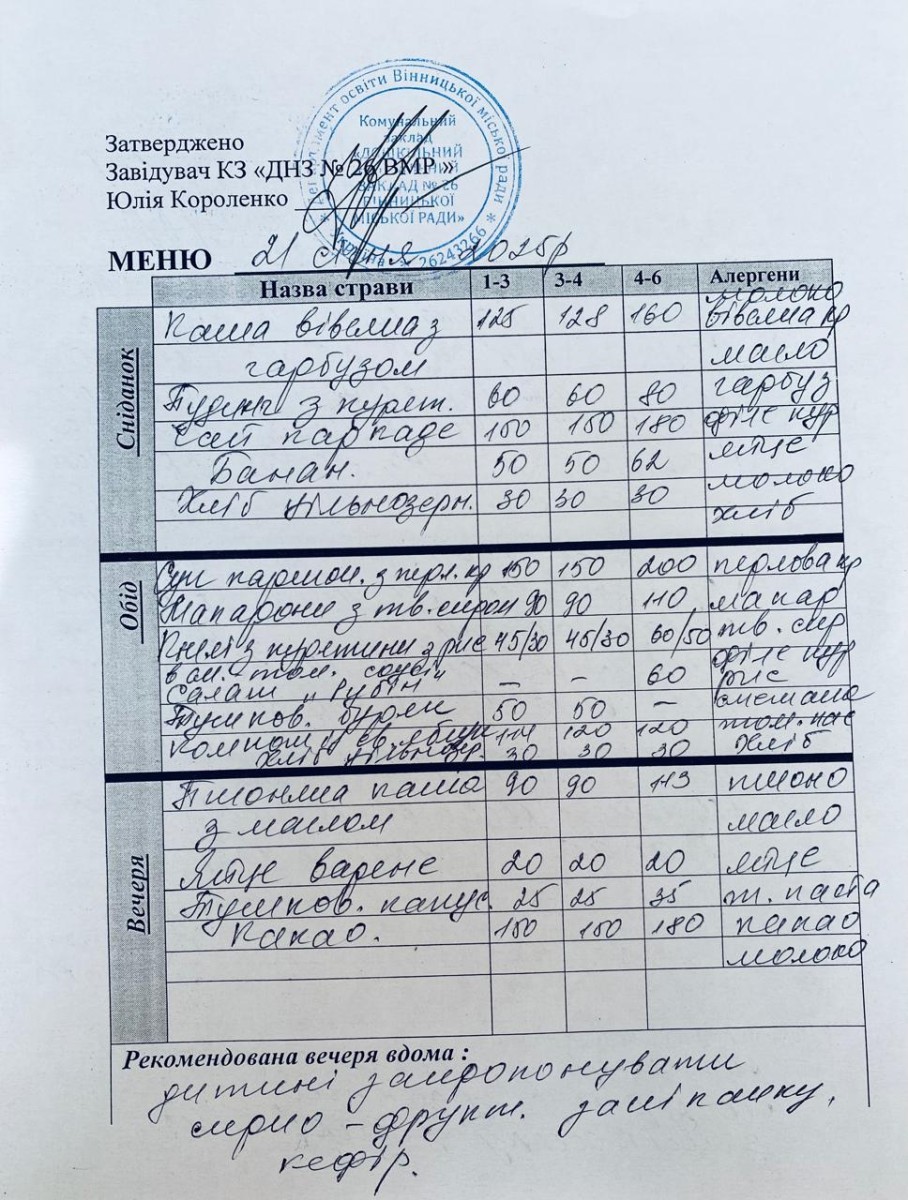 Департамент освіти Вінницької міської ради
Комунальний
заклад
«ДОШКІЛЬНИЙ
НАВЧАЛЬНИЙ
ЗАКЛАД № 26
ВІННИЦЬКОЇ
МІСЬКОЇ РАДИ»
Україна * 26243266 *
Затверджено
Завідувач КЗ «ДНЗ № 26 ВМР »
Юлія Короленко
МЕНЮ 21 2025р
Назва страви 1-3 3-4 4-6 Алергени
Сніданок
молоко
Каша вівсяна з 125 128 160 вівсяна кр
гарбузом масло
Пудинг з курят. 60 60 80 гарбуз
Чай каркаде 150 150 180 філе кур
Банан. 50 50 62 яйце
Хліб цільнозерн. 30 30 30 молоко
хліб
Обід
Суп картоп. з перл. кр 150 150 200 перлова кр
Макарони з тв. сиром 90 90 110 макар
Кнелі з курятини з рис 45/30 45/30 60/50 тв. сир
в см. том. соусі філе кур
Салат „Рубін" – – 60 рис
Тушков. буряк 50 50 – сметана
Компот із св. яблук 114 120 120 том. пас
Хліб цільнозер. 30 30 30 хліб
Вечеря
Пшоняна каша 90 90 113 пшоно
з маслом масло
Яйце варене 20 20 20 яйце
Тушков. капус. 25 25 35 т. паста
Какао. 150 150 180 какао
молоко
Рекомендована вечеря вдома :
дитині запропонувати
сирно - фрукт. запіканку,
кефір.